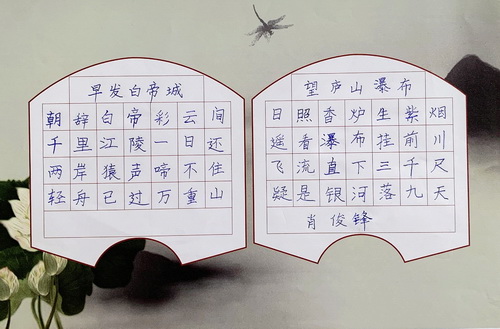 早发白帝城
朝辞白帝彩云间
千里江陵一日还
两岸猿声啼不住
轻舟已过万重山
望庐山瀑布
日照香炉生紫烟
遥看瀑布挂前川
飞流直下三千尺
疑是银河落九天
肖俊锋